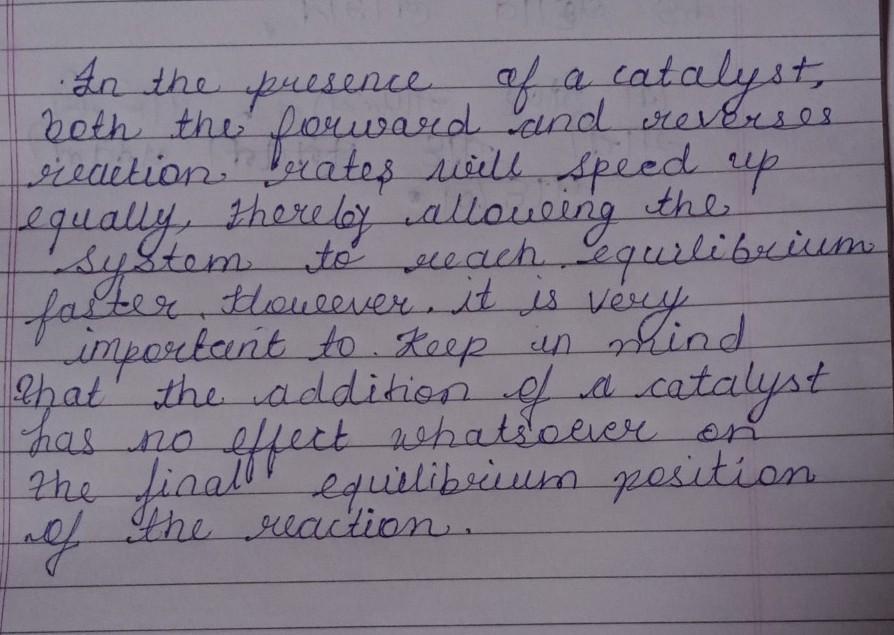 In the presence of a catalyst,
both the forward and reverses
reaction rates will speed up
equally, thereby allowing the
system to reach equilibrium
faster. However, it is very
important to keep in mind
that the addition of a catalyst
has no effect whatsoever on
the final equilibrium position
of the reaction.